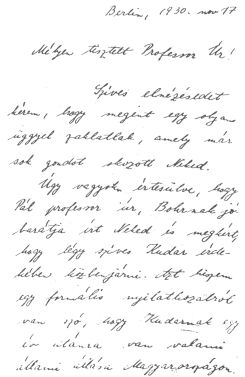 Berlin, 1930. nov 17
Mélyen tisztelt Professor Úr!
Szíves elnézésedet
kérem, hogy megint egy olyan
üggyel zaklatlak, amely már
sok gondot okozott Neked.
Úgy vagyok értesülve, hogy
Pál professor úr, Bohrnak jó
barátja írt Neked és megkért,
hogy légy szíves Kudar érde-
kében közbenjárni. Azt hiszem
egy formális nyilatkozatról
van szó, hogy Kudarnak egy
év utánra van valami
állami állása Magyarországon.